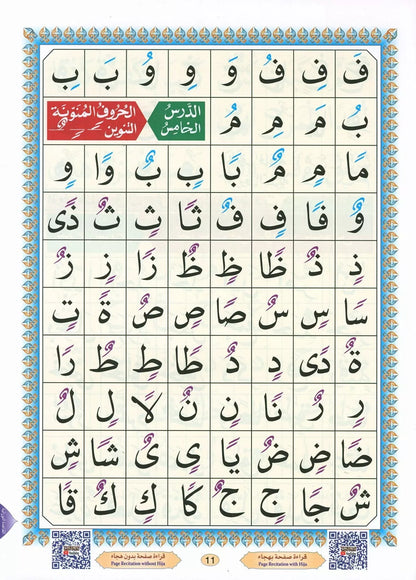 فَ فِ فُ وَ وِ وُ بَ بِ
بُ مَ مِ مُ
الدَّرسُ الخَامِسُ
الحُرُوفُ المُنَوَّنَة
التَّنوين
مًا مٍ مٌ بًا بٍ بٌ وًا وٍ
وٌ فًا فٍ فٌ ثًا ثٍ ثٌ ذًى
ذٍ ذٌ ظًا ظٍ ظٌ زًا زٍ زٌ
سًا سٍ سٌ صًا صٍ صٌ ةً تٍ
ةٌ دًى دٍ دٌ طًا طٍ طٌ رًا
رٍ رٌ نًا نٍ نٌ لًا لٍ لٌ
ضًا ضٍ ضٌ يًا يٍ يٌ شًا شٍ
شٌ جًا جٍ جٌ كًا كٍ كٌ قًا
قراءة صفحة بهجاء
Page Recitation with Hija
11
قراءة صفحة بدون هجاء
Page Recitation without Hija